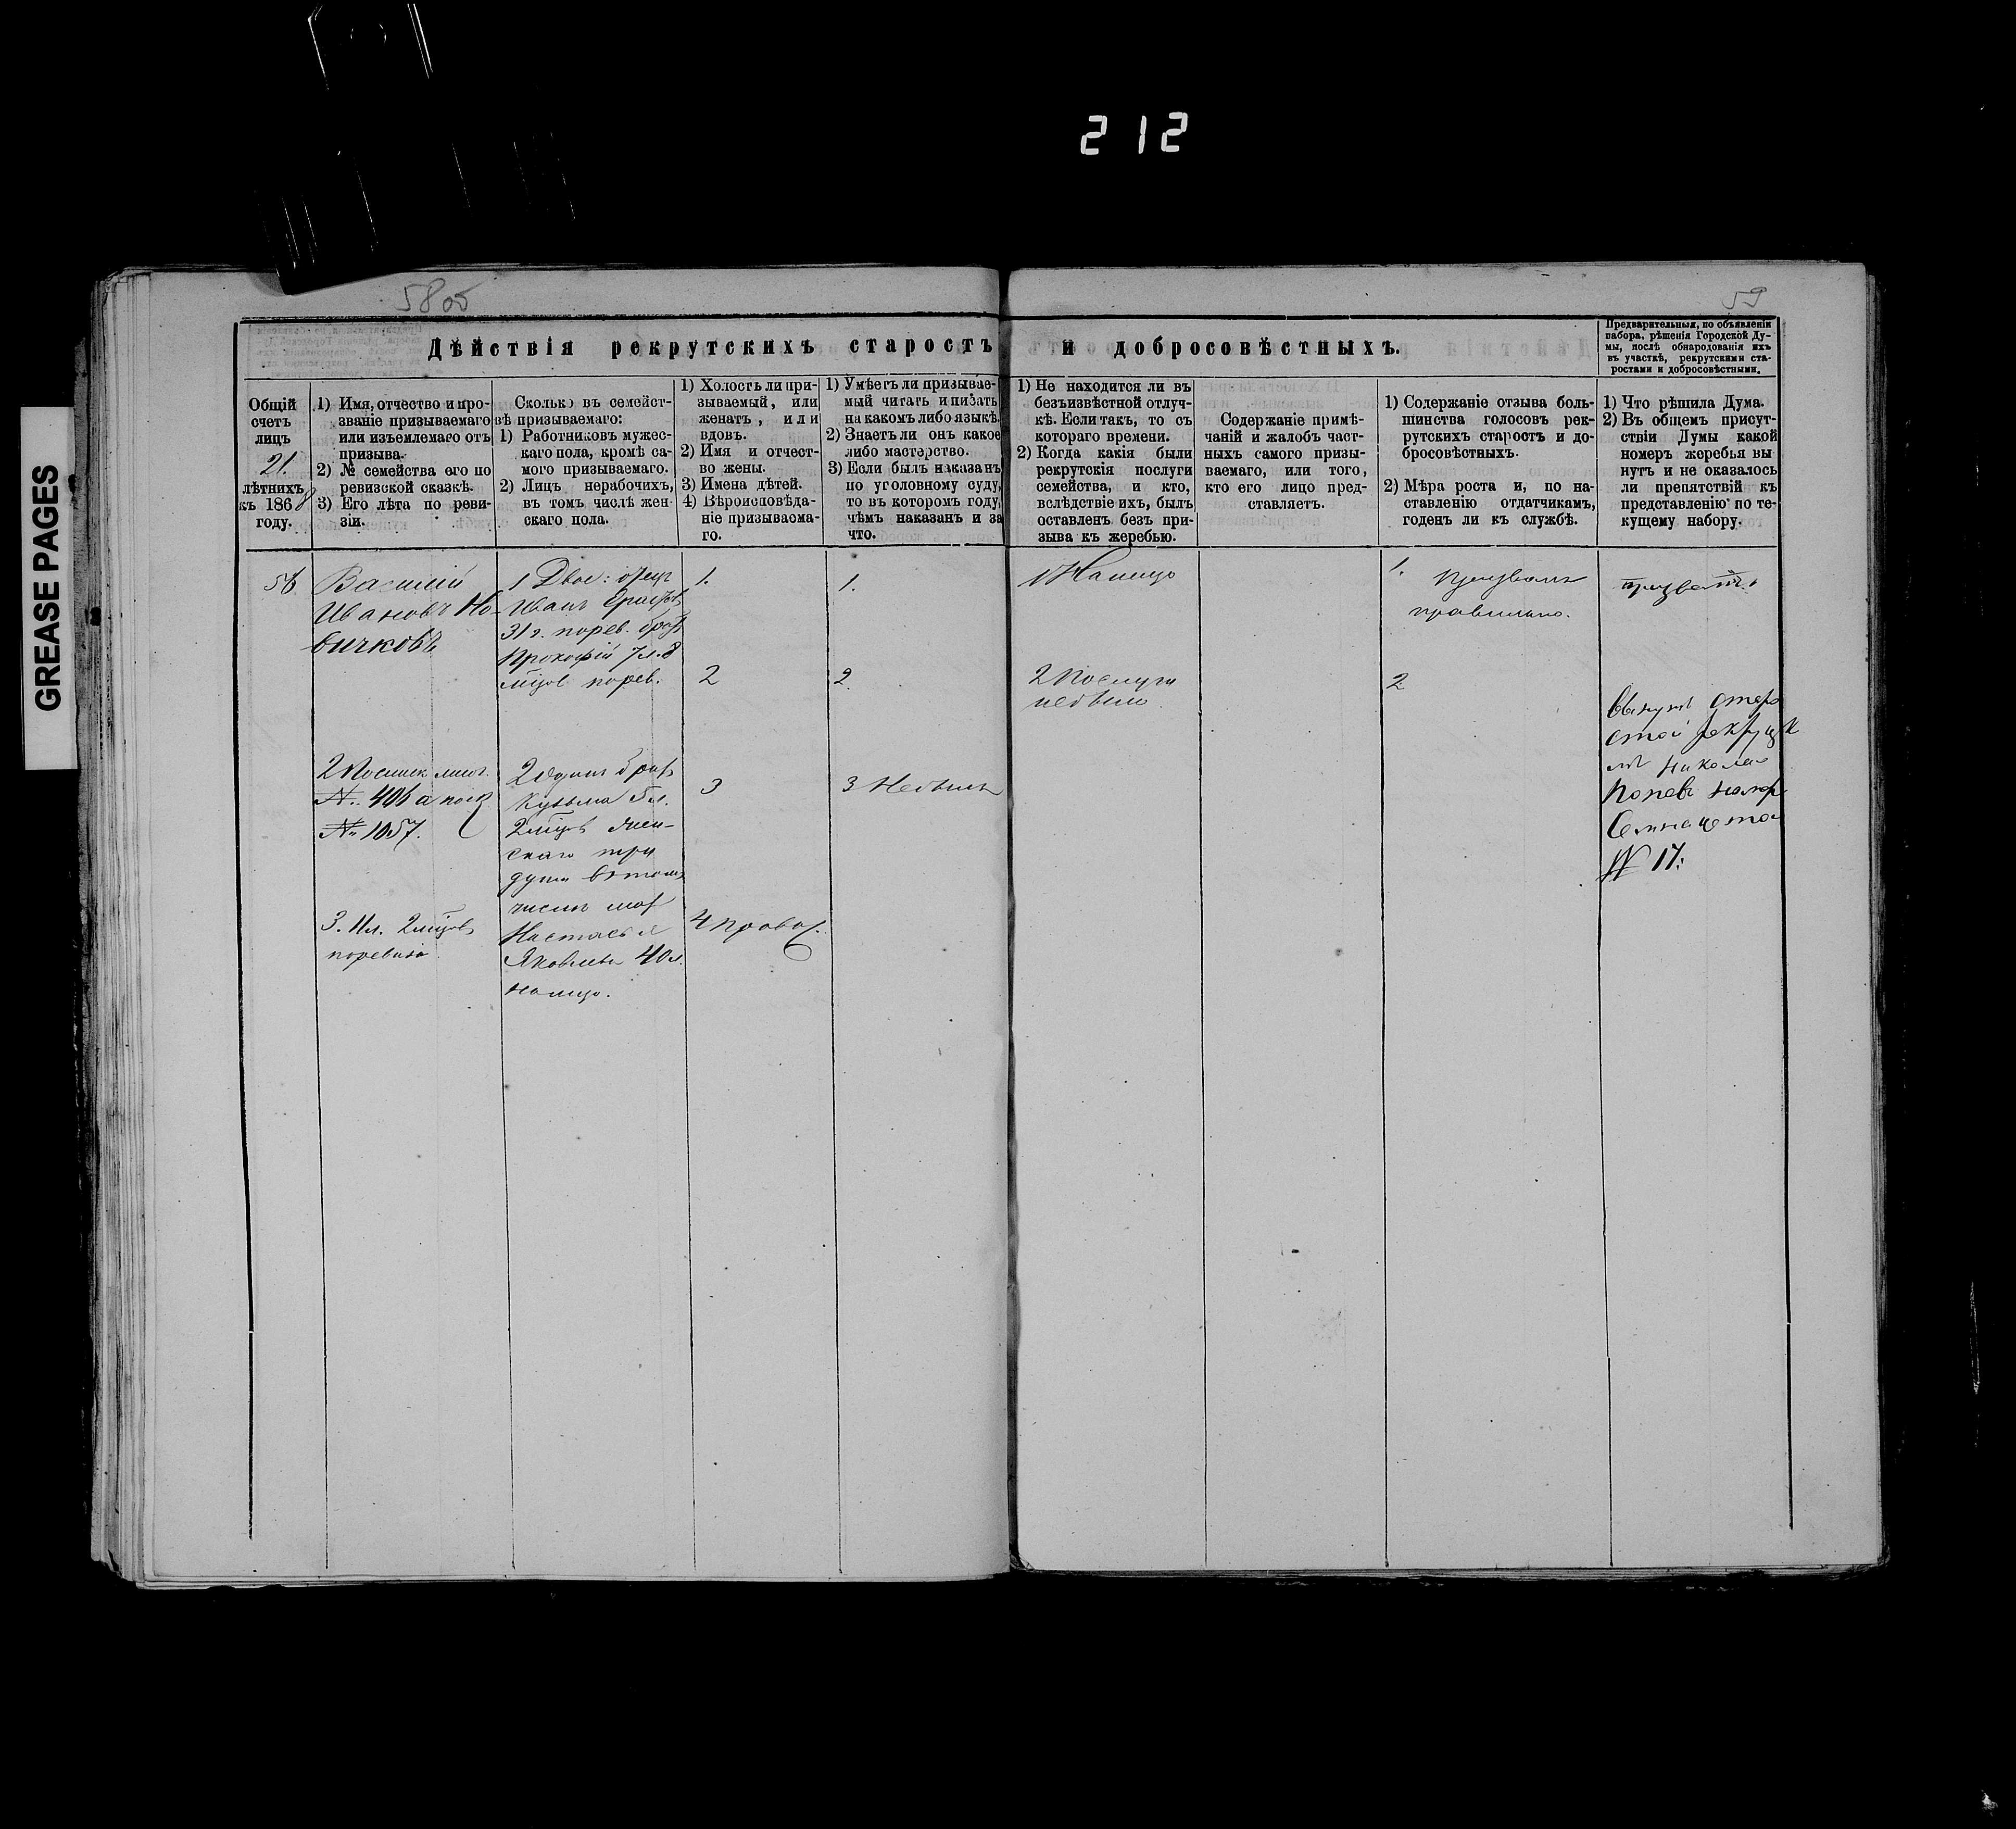 212
GREASE PAGES
58об
59
Дѣйствія рекрутскихъ старостъ и добросовѣстныхъ.
Предварительныя, по объявленіи
набора, рѣшенія Городской Ду-
мы, послѣ обнародованія ихъ
въ участкѣ, рекрутскими ста-
ростами и добросовѣстными.
Общій
счетъ
лицъ
21.
лѣтнихъ
къ 1868
году.
1) Имя, отчество и про-
званіе призываемаго
или изъемлемаго отъ
призыва.
2) № семейства его по
ревизской сказкѣ.
3) Его лѣта по реви-
зіи.
Сколько въ семейст-
вѣ призываемаго:
1) Работниковъ мужес-
каго пола, кромѣ са-
мого призываемаго.
2) Лицъ нерабочихъ,
въ томъ числѣ жен-
скаго пола.
1) Холостъ ли при-
зываемый, или
женатъ, или
вдовъ.
2) Имя и отчест-
во жены.
3) Имена дѣтей.
4) Вѣроисповѣда-
ніе призываема-
го.
1) Умѣетъ ли призывае-
мый читать и писать
на какомъ либо языкѣ.
2) Знаетъ ли онъ какое
либо мастерство.
3) Если былъ наказанъ
по уголовному суду,
то въ которомъ году,
чѣмъ наказанъ и за
что.
1) Не находится ли въ
безъизвѣстной отлуч-
кѣ. Если такъ, то съ
котораго времени.
2) Когда какія были
рекрутскія послуги
семейства, и кто,
вслѣдствіе ихъ, былъ
оставленъ безъ при-
зыва къ жеребью.
Содержаніе примѣ-
чаній и жалобъ част-
ныхъ самого призы-
ваемаго, или того,
кто его лицо пред-
ставляетъ.
1) Содержаніе отзыва боль-
шинства голосовъ рек-
рутскихъ старостъ и до-
бросовѣстныхъ.
2) Мѣра роста и, по на-
ставленію отдатчикамъ,
годенъ ли къ службѣ.
1) Что рѣшила Дума.
2) Въ общемъ присут-
ствіи Думы какой
номеръ жеребья вы
нутъ и не оказалось
ли препятствій къ
представленію по те-
кущему набору.
56
Василій
Ивановъ Но-
вичковъ
2 № 406 а
№ 1057.
3. 11 л. 2 мѣцовъ
поревизо
1 Двое: отецъ
Иванъ
31 г. порев. братъ
Прокофій 7 л. 8
мѣцов порев.
2 Одинъ братъ
Кузьма 5 л.
2 мѣцов Жен-
скаго три
души въ томъ
числѣ мать
Настасья
Яковлева 40 л.
налицо.
1.
2
3
4 Правос.
1.
2.
3 Небылъ
1 Налицо
2 Послуги
небыло
1. Призванъ
правильно.
2
призвать
Вынутъ старо
стой рекрутск
имъ Николаемъ
Поповъ номеръ
Семнацатой
№ 17.